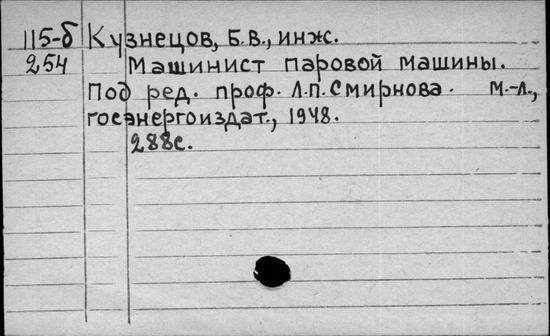 115-б Кузнецов, Б.В., инж.
254 Машинист паровой машины.
Под ред. проф. Л.П. Смирнова. М.-Л.,
госэнергоиздат., 1948.
288с.